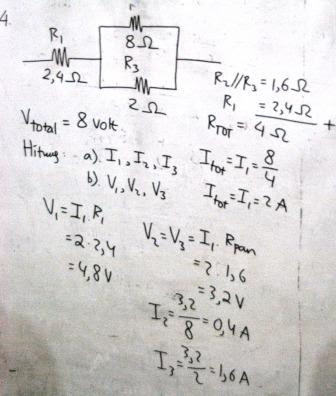 4.
R₁
8 Ω
R₃
2,4 Ω
2 Ω
R₂//R₃ = 1,6 Ω
R₁ = 2,4 Ω +
R_TOT = 4 Ω
V_total = 8 volt
Hitung: a). I₁, I₂, I₃
b). V₁, V₂, V₃
I_tot = I₁ = 8/4
I_tot = I₁ = 2 A
V₁ = I₁ . R₁
= 2 . 2,4
= 4,8 V
V₂ = V₃ = I₁ . R_par
= 2 . 1,6
= 3,2 V
I₂ = 3,2/8 = 0,4 A
I₃ = 3,2/2 = 1,6 A